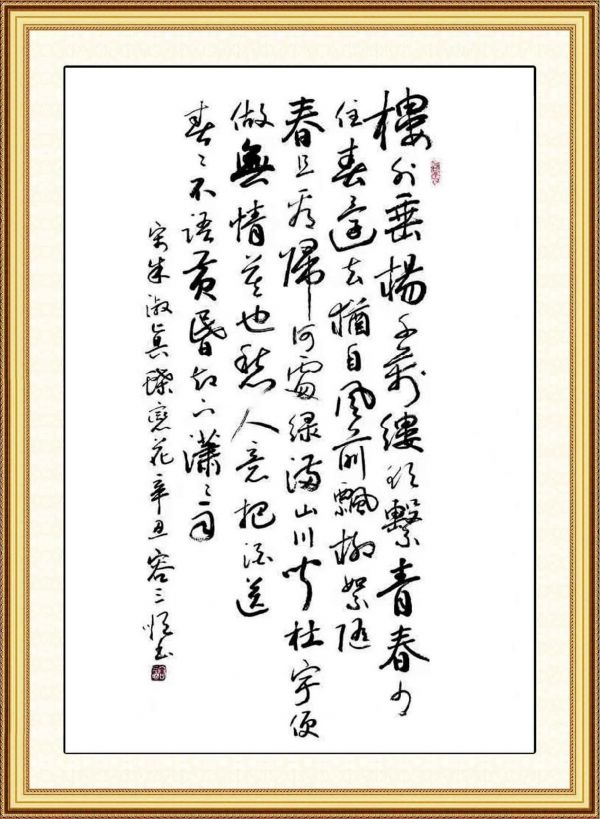 樓外垂楊千萬縷欲繫青春少
住春還去猶自風前飄柳絮隨
春且看歸何處綠滿山川聞杜宇便
做無情莫也愁人意把酒送
春〻不語黃昏却下瀟〻雨
宋朱淑真蝶戀花辛丑容三書